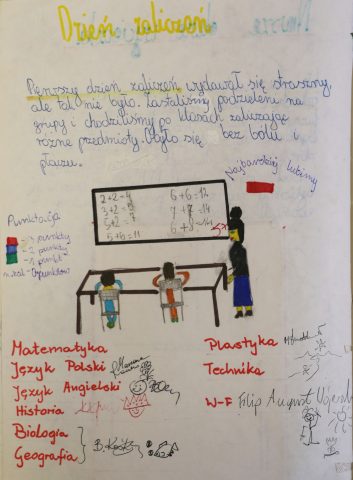 Dzień zaliczeń
Pierwszy dzień zaliczeń wydawał się straszny,
ale tak nie było. Zostaliśmy podzieleni na
grupy i chodziliśmy po klasach zaliczając
różne przedmioty. Obyło się bez bólu i
płaczu.
Najbardziej lubimy
Punktacja
-3 punkty
-2 punkty
-1 punkt
2+2=4
3+2=5
5+2=7
5+6=11
6+6=12
7+7=14
6+8=14
Matematyka
Język Polski
Język Angielski
Historia
Biologia
Geografia
Plastyka
Technika
W-F Filip August